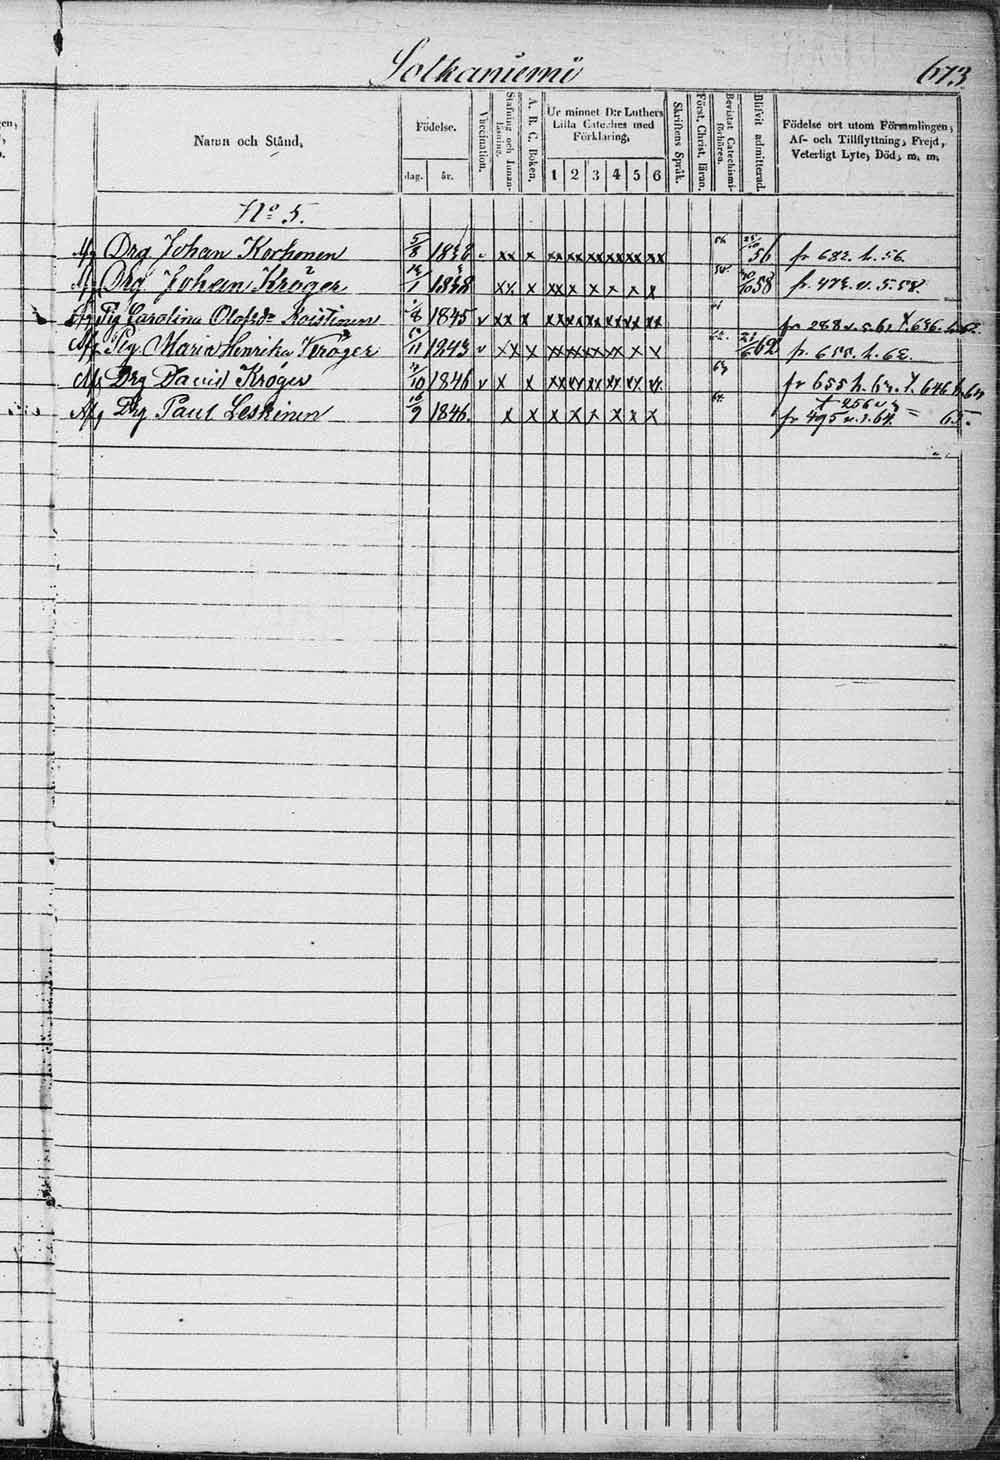 Solkaniemi 673
Namn och Stånd,
Födelse.
dag. år.
Vaccination.
Stafning och Innan-läsning.
A. B. C. Boken.
Ur minnet D:r Luthers Lilla Cateches med Förklaring,
1 2 3 4 5 6
Skriftens Språk.
Först. Christ. läran.
Bevistat Catechismi-förhören.
Blifvit admitterad.
Födelse ort utom Församlingen,
Af- och Tillflyttning, Frejd,
Veterligt Lyte, Död, m. m,
No 5.
Drg Johan Korhonen 5/8 1838 xx x xx xx xx xx xx xx 56 fr 682. h. 56.
Drg Johan Kröger 1838 xx x xx x x x x x 58 fr. 473. v. s. 58.
Pig Carolina Olofsdr Koistinen 1845 v xx x xx xx xx xx xx xx fr 288 v. s. 61 636. h. 62.
Pig Maria Henrika Kröger /11 1843 v xx x xx xx xx x x x 62 fr. 655. h. 62.
Drg David Kröger /10 1846 v x x xx xx xx xx xx fr 655 h. 63. 646 h. 64
Drg Paul Leskinen 16/9 1846. x x x x x x x x 64. fr 495 v. s. 64. 256 65.